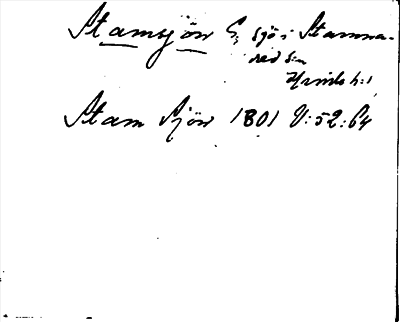 Stamsjön G, sjö i Stamna-
red sn
Hrads h:d
Stam Sjön 1801 V:52:64